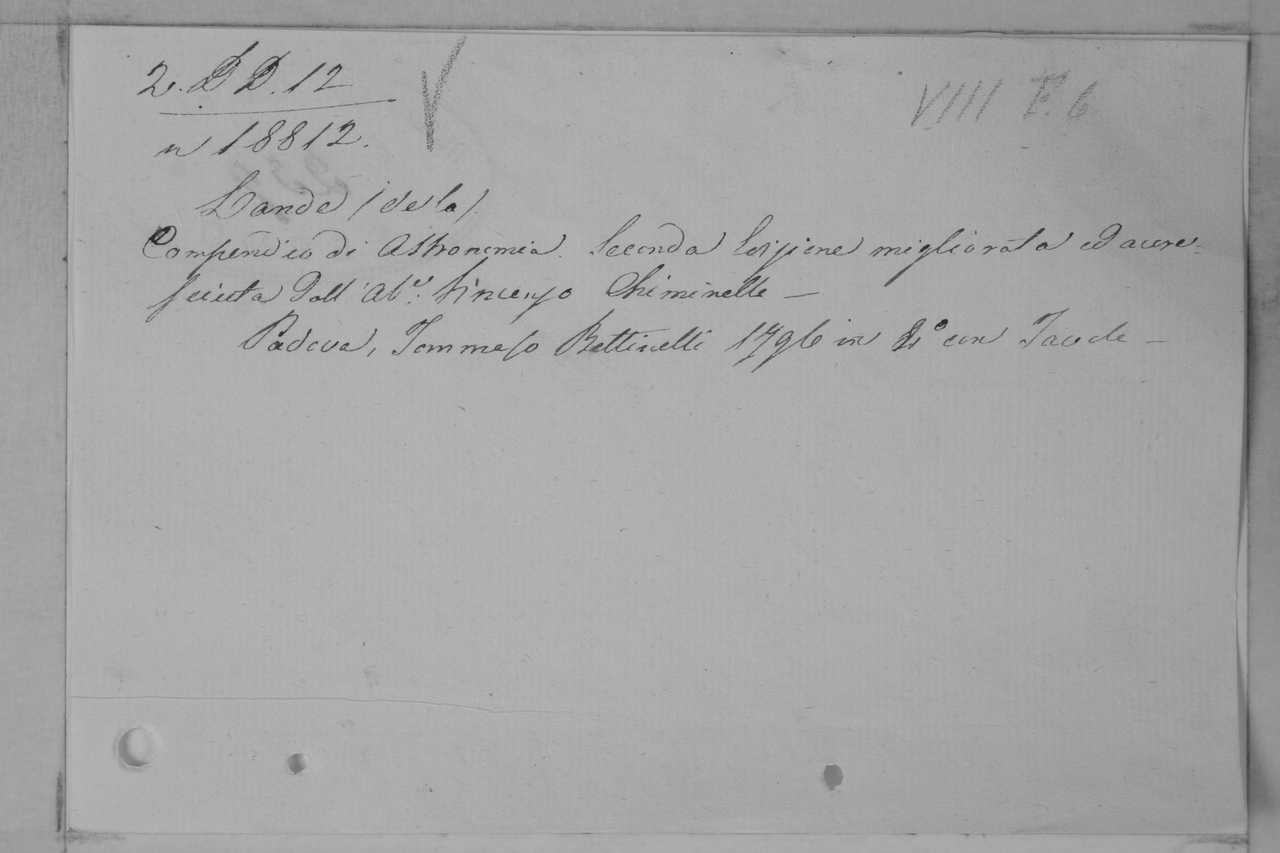 2. D D. 12
V
VIII F. 6
n 18812.
Lande (de la)
Compendio di Astronomia. Seconda Edizione migliorata ed accre-
sciuta dall' Ab.e Vincenzo Chiminello —
Padova, Tommaso Bettinelli 1796 in 8° con Tavole —